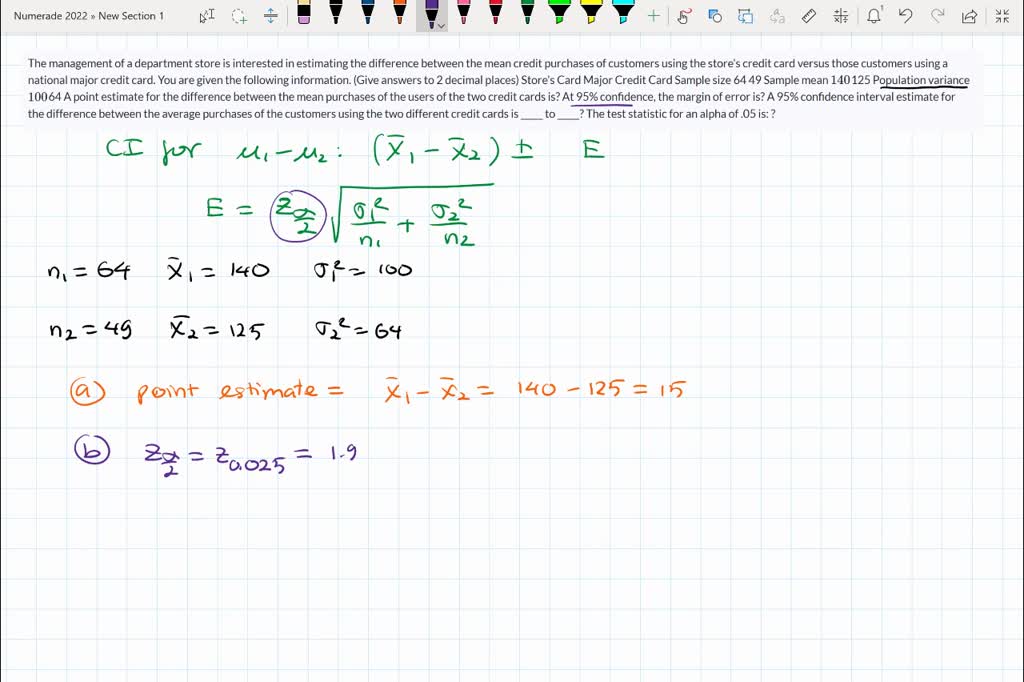 Numerade 2022 » New Section 1
The management of a department store is interested in estimating the difference between the mean credit purchases of customers using the store's credit card versus those customers using a
national major credit card. You are given the following information. (Give answers to 2 decimal places) Store's Card Major Credit Card Sample size 64 49 Sample mean 140 125 Population variance
100 64 A point estimate for the difference between the mean purchases of the users of the two credit cards is? At 95% confidence, the margin of error is? A 95% confidence interval estimate for
the difference between the average purchases of the customers using the two different credit cards is ____ to ____? The test statistic for an alpha of .05 is: ?
CI for μ₁ - μ₂ : (x̄₁ - x̄₂) ± E
E = z_α/2 √(σ₁²/n₁ + σ₂²/n₂)
n₁ = 64 x̄₁ = 140 σ₁² = 100
n₂ = 49 x̄₂ = 125 σ₂² = 64
(a) point estimate = x̄₁ - x̄₂ = 140 - 125 = 15
(b) z_α/2 = z_0.025 = 1.9